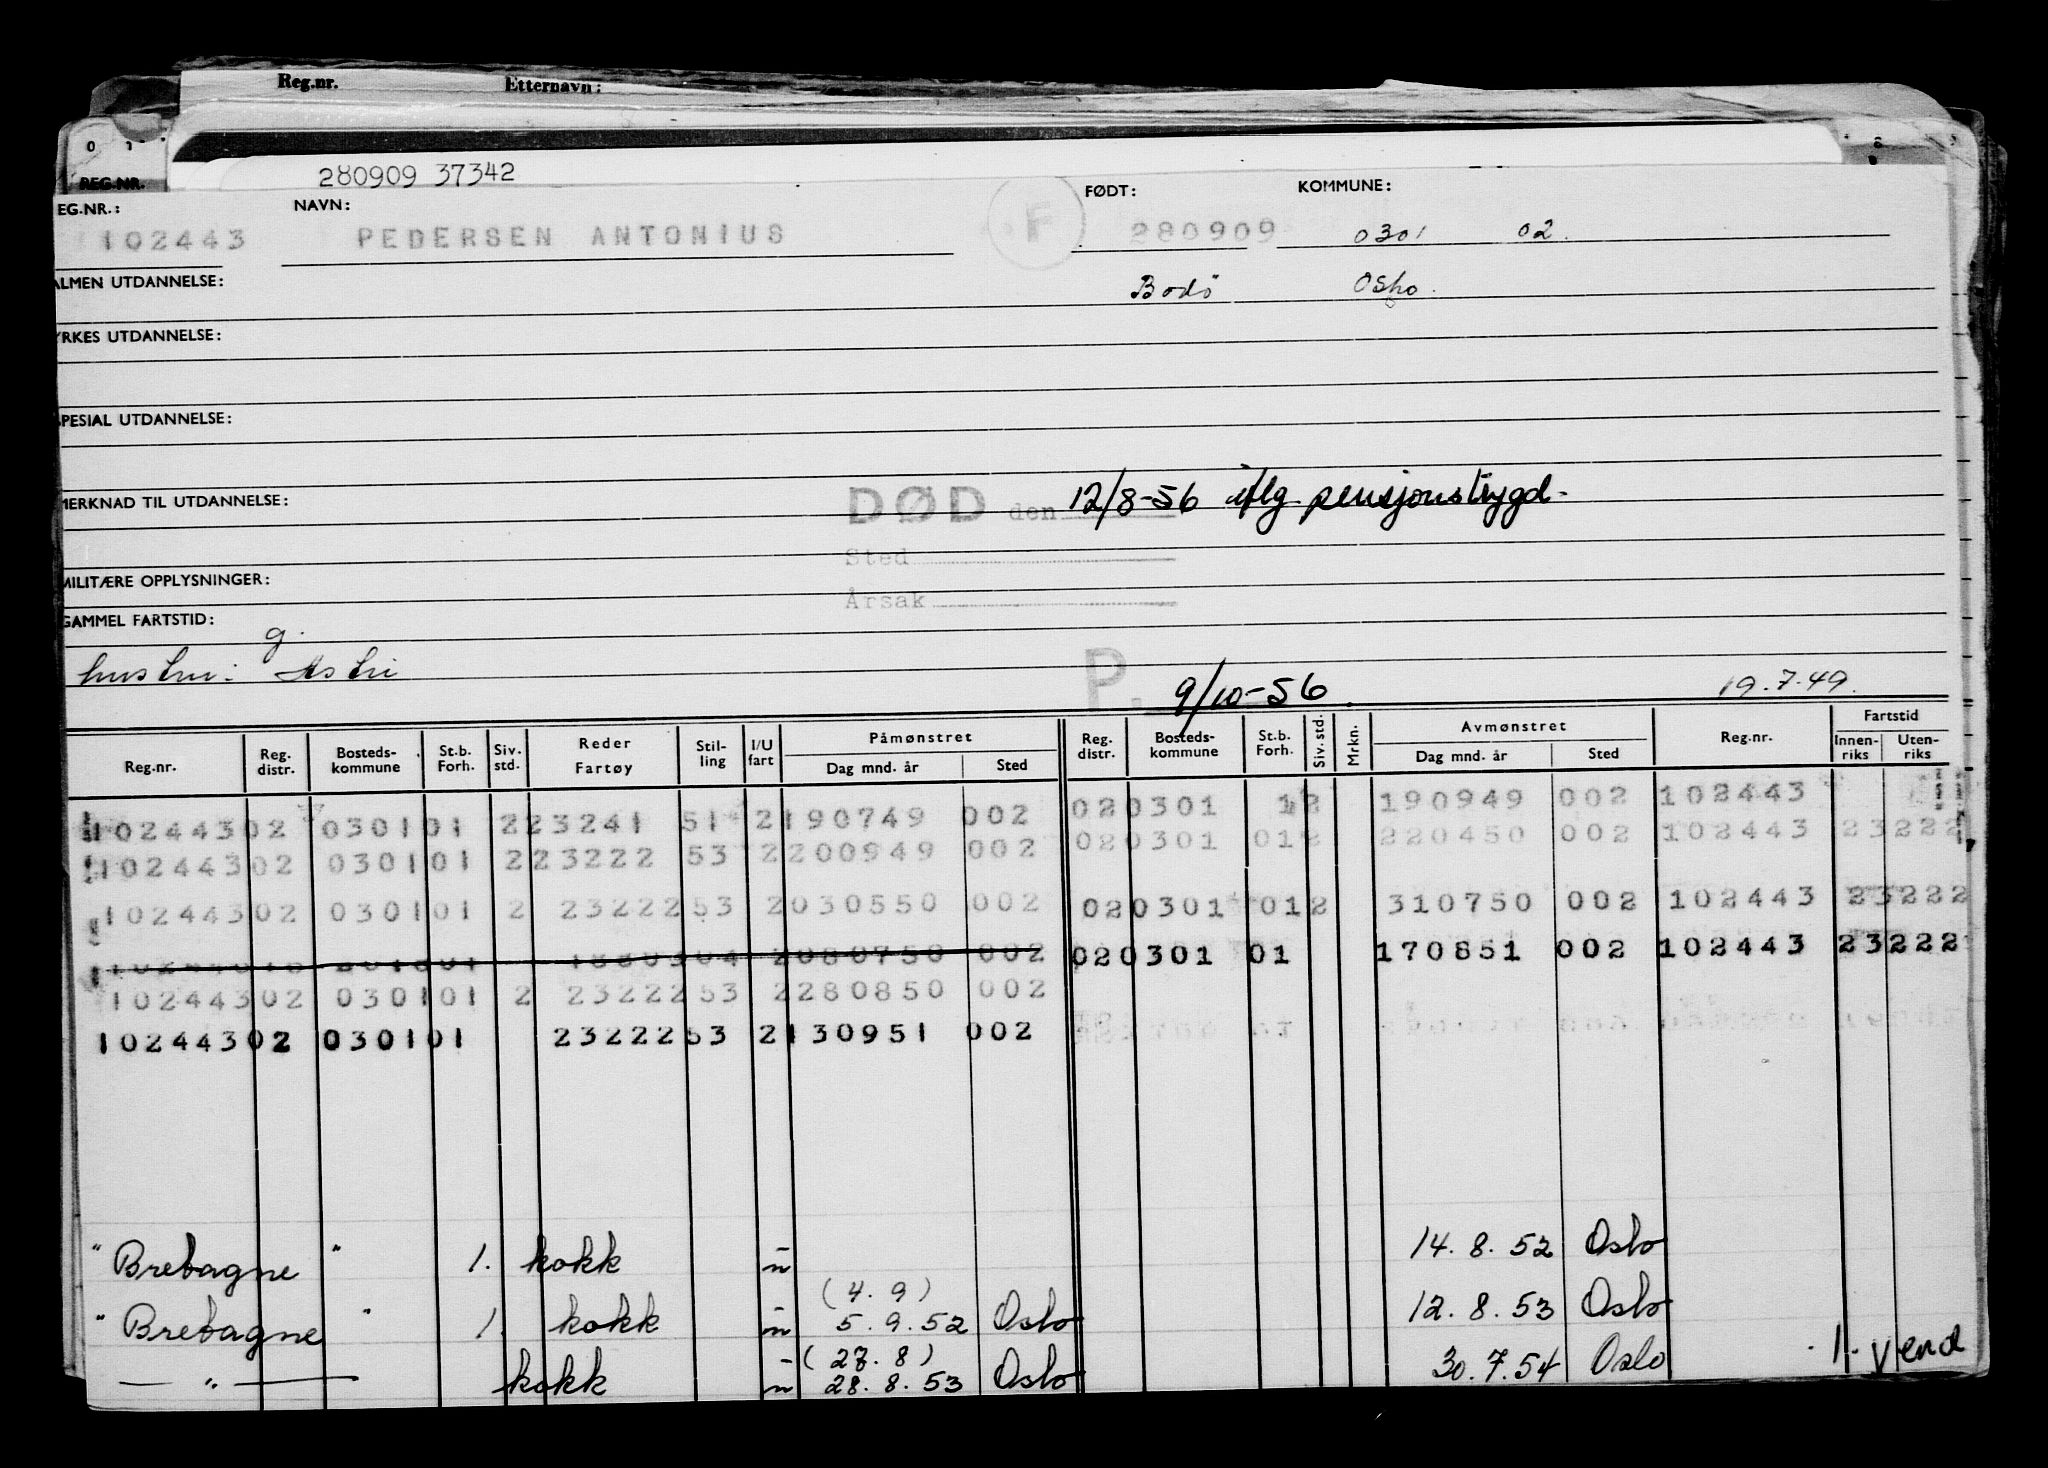 Reg.nr. Etternavn:
REG.NR.
280909 37342
EG.NR.: NAVN: FØDT: KOMMUNE:
102443 PEDERSEN ANTONIUS F 280909 0301 02.
ALMEN UTDANNELSE: Bodö Oslo.
YRKES UTDANNELSE:
SPESIAL UTDANNELSE:
MERKNAD TIL UTDANNELSE: DØD den 12/8-56 iflg. pensjonstrygd.
Sted
MILITÆRE OPPLYSNINGER:
Årsak
GAMMEL FARTSTID:
g.
hustru: Astri P. 9/10-56. 19.7.49.
Reg.nr. Reg. distr. Bosteds-kommune St.b. Forh. Siv. std. Reder Fartøy Stil-ling I/U fart Påmønstret Dag mnd. år Sted Reg. distr. Bosteds-kommune St.b. Forh. Siv. std. Mrkn. Avmønstret Dag mnd. år Sted Reg.nr. Fartstid Innen-riks Uten-riks
102443 02 0301 01 2 23241 51 2 190749 002 02 0301 1 2 190949 002 102443
102443 02 0301 01 2 23222 53 2 200949 002 02 0301 01 2 220450 002 102443 23222
102443 02 0301 01 2 23222 53 2 030550 002 02 0301 01 2 310750 002 102443 23222
2 080750 002 02 0301 01 170851 002 102443 23222
102443 02 0301 01 2 23222 53 2 280850 002
102443 02 0301 01 23222 53 2 130951 002
" Bretagne " 1. kokk u 14.8.52 Oslo
(4.9)
" Bretagne " 1. kokk u 5.9.52 Oslo 12.8.53 Oslo
(27.8)
— " — kokk u 28.8.53 Oslo 30.7.54 Oslo
1. Vend